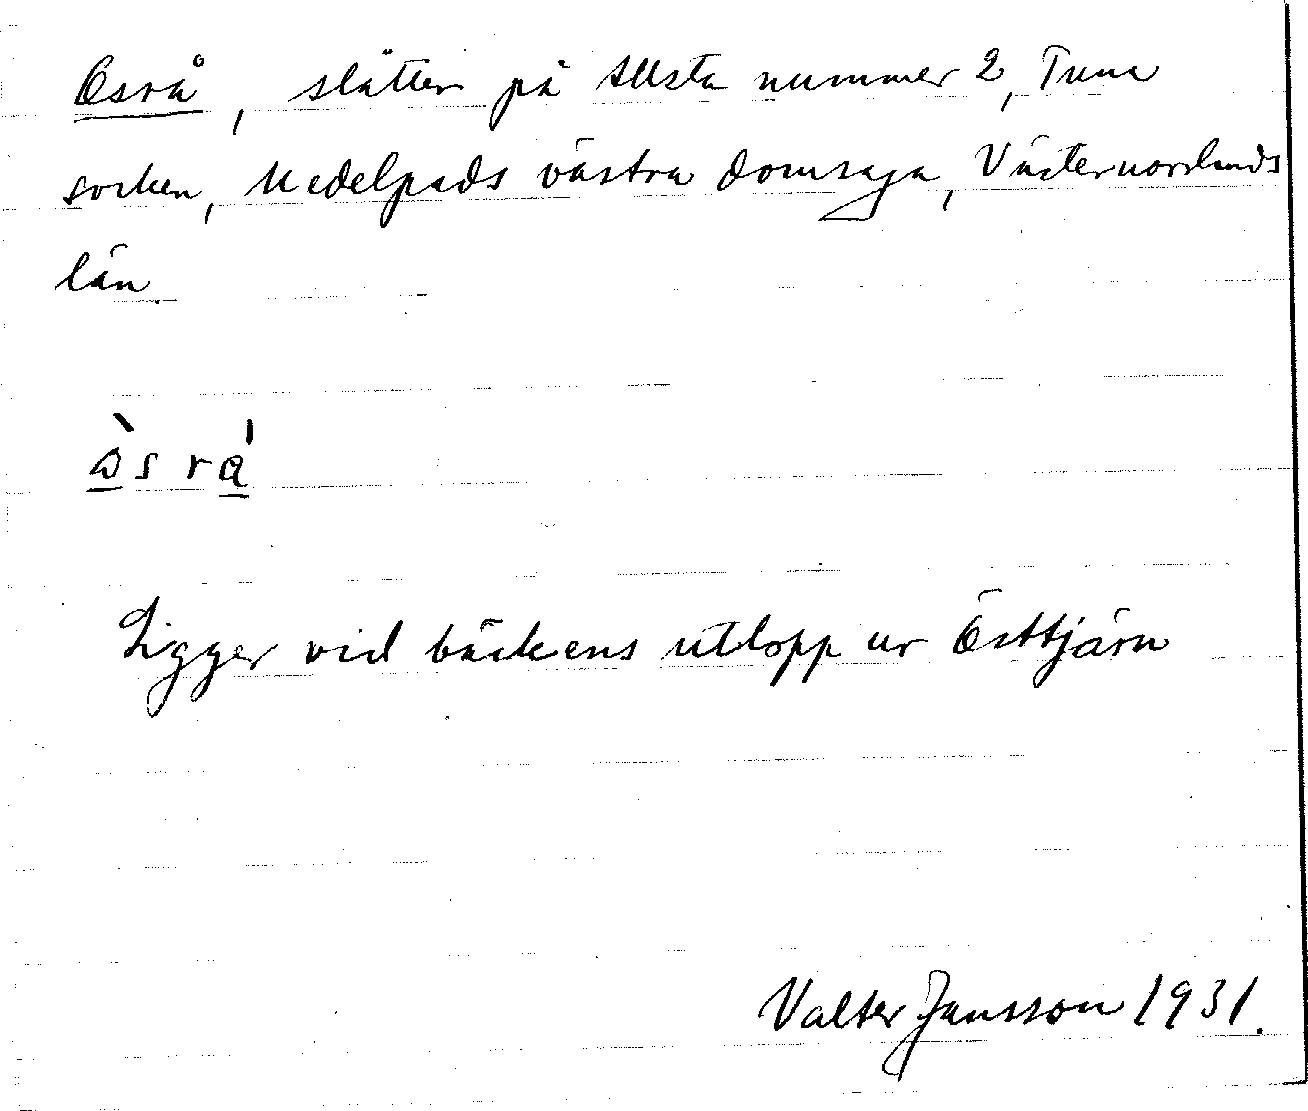 Osrå, slåtter på Allsta nummer 2, Tuna
socken, Medelpads västra domsaga, Västernorrlands
län.
ò s r å
Ligger vid bäckens utlopp ur Östtjärn
Valter Jansson 1931.